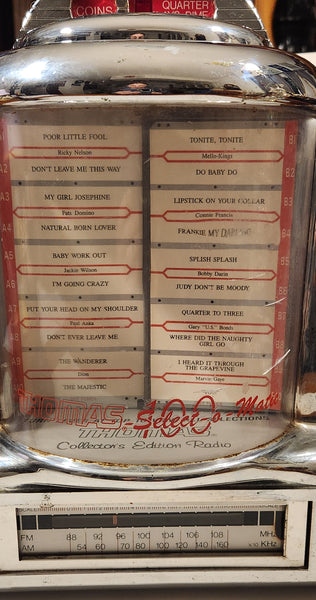 COINS
QUARTER
POOR LITTLE FOOL
Ricky Nelson
DON'T LEAVE ME THIS WAY
MY GIRL JOSEPHINE
Fats Domino
NATURAL BORN LOVER
BABY WORK OUT
Jackie Wilson
I'M GOING CRAZY
PUT YOUR HEAD ON MY SHOULDER
Paul Anka
DON'T EVER LEAVE ME
THE WANDERER
Dion
THE MAJESTIC
TONITE, TONITE
Mello-Kings
DO BABY DO
LIPSTICK ON YOUR COLLAR
Connie Francis
FRANKIE MY DARLING
SPLISH SPLASH
Bobby Darin
JUDY DON'T BE MOODY
QUARTER TO THREE
Gary "U.S." Bonds
WHERE DID THE NAUGHTY
GIRL GO
I HEARD IT THROUGH
THE GRAPEVINE
Marvin Gaye
A2
A3
A4
A5
A6
A7
A8
A9
B1
B2
B3
B4
B5
B6
B7
B8
THOMAS Select-O-Matic
SELECTIONS
THOMAS
Collector's Edition Radio
FM 88 92 96 100 104 106 108 MHz
AM 54 60 70 80 100 120 140 160 x10 KHz